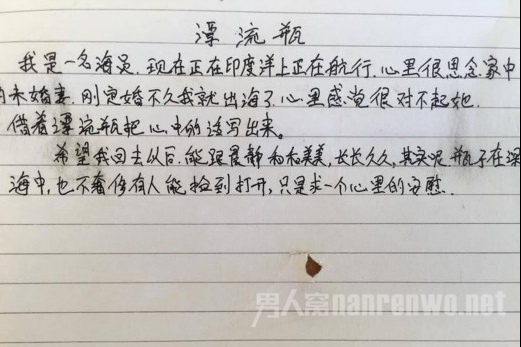 漂流瓶
我是一名海员,现在正在印度洋上正在航行,心里很思念家中
的未婚妻,刚定婚不久我就出海了,心里感觉很对不起她,
借着漂流瓶把心中的话写出来。
希望我回去以后,能跟晨静和和美美,长长久久,其实呢瓶子在深
海中,也不奢侈有人能捡到打开,只是求一个心里的安慰.
男人窝nanrenwo.net